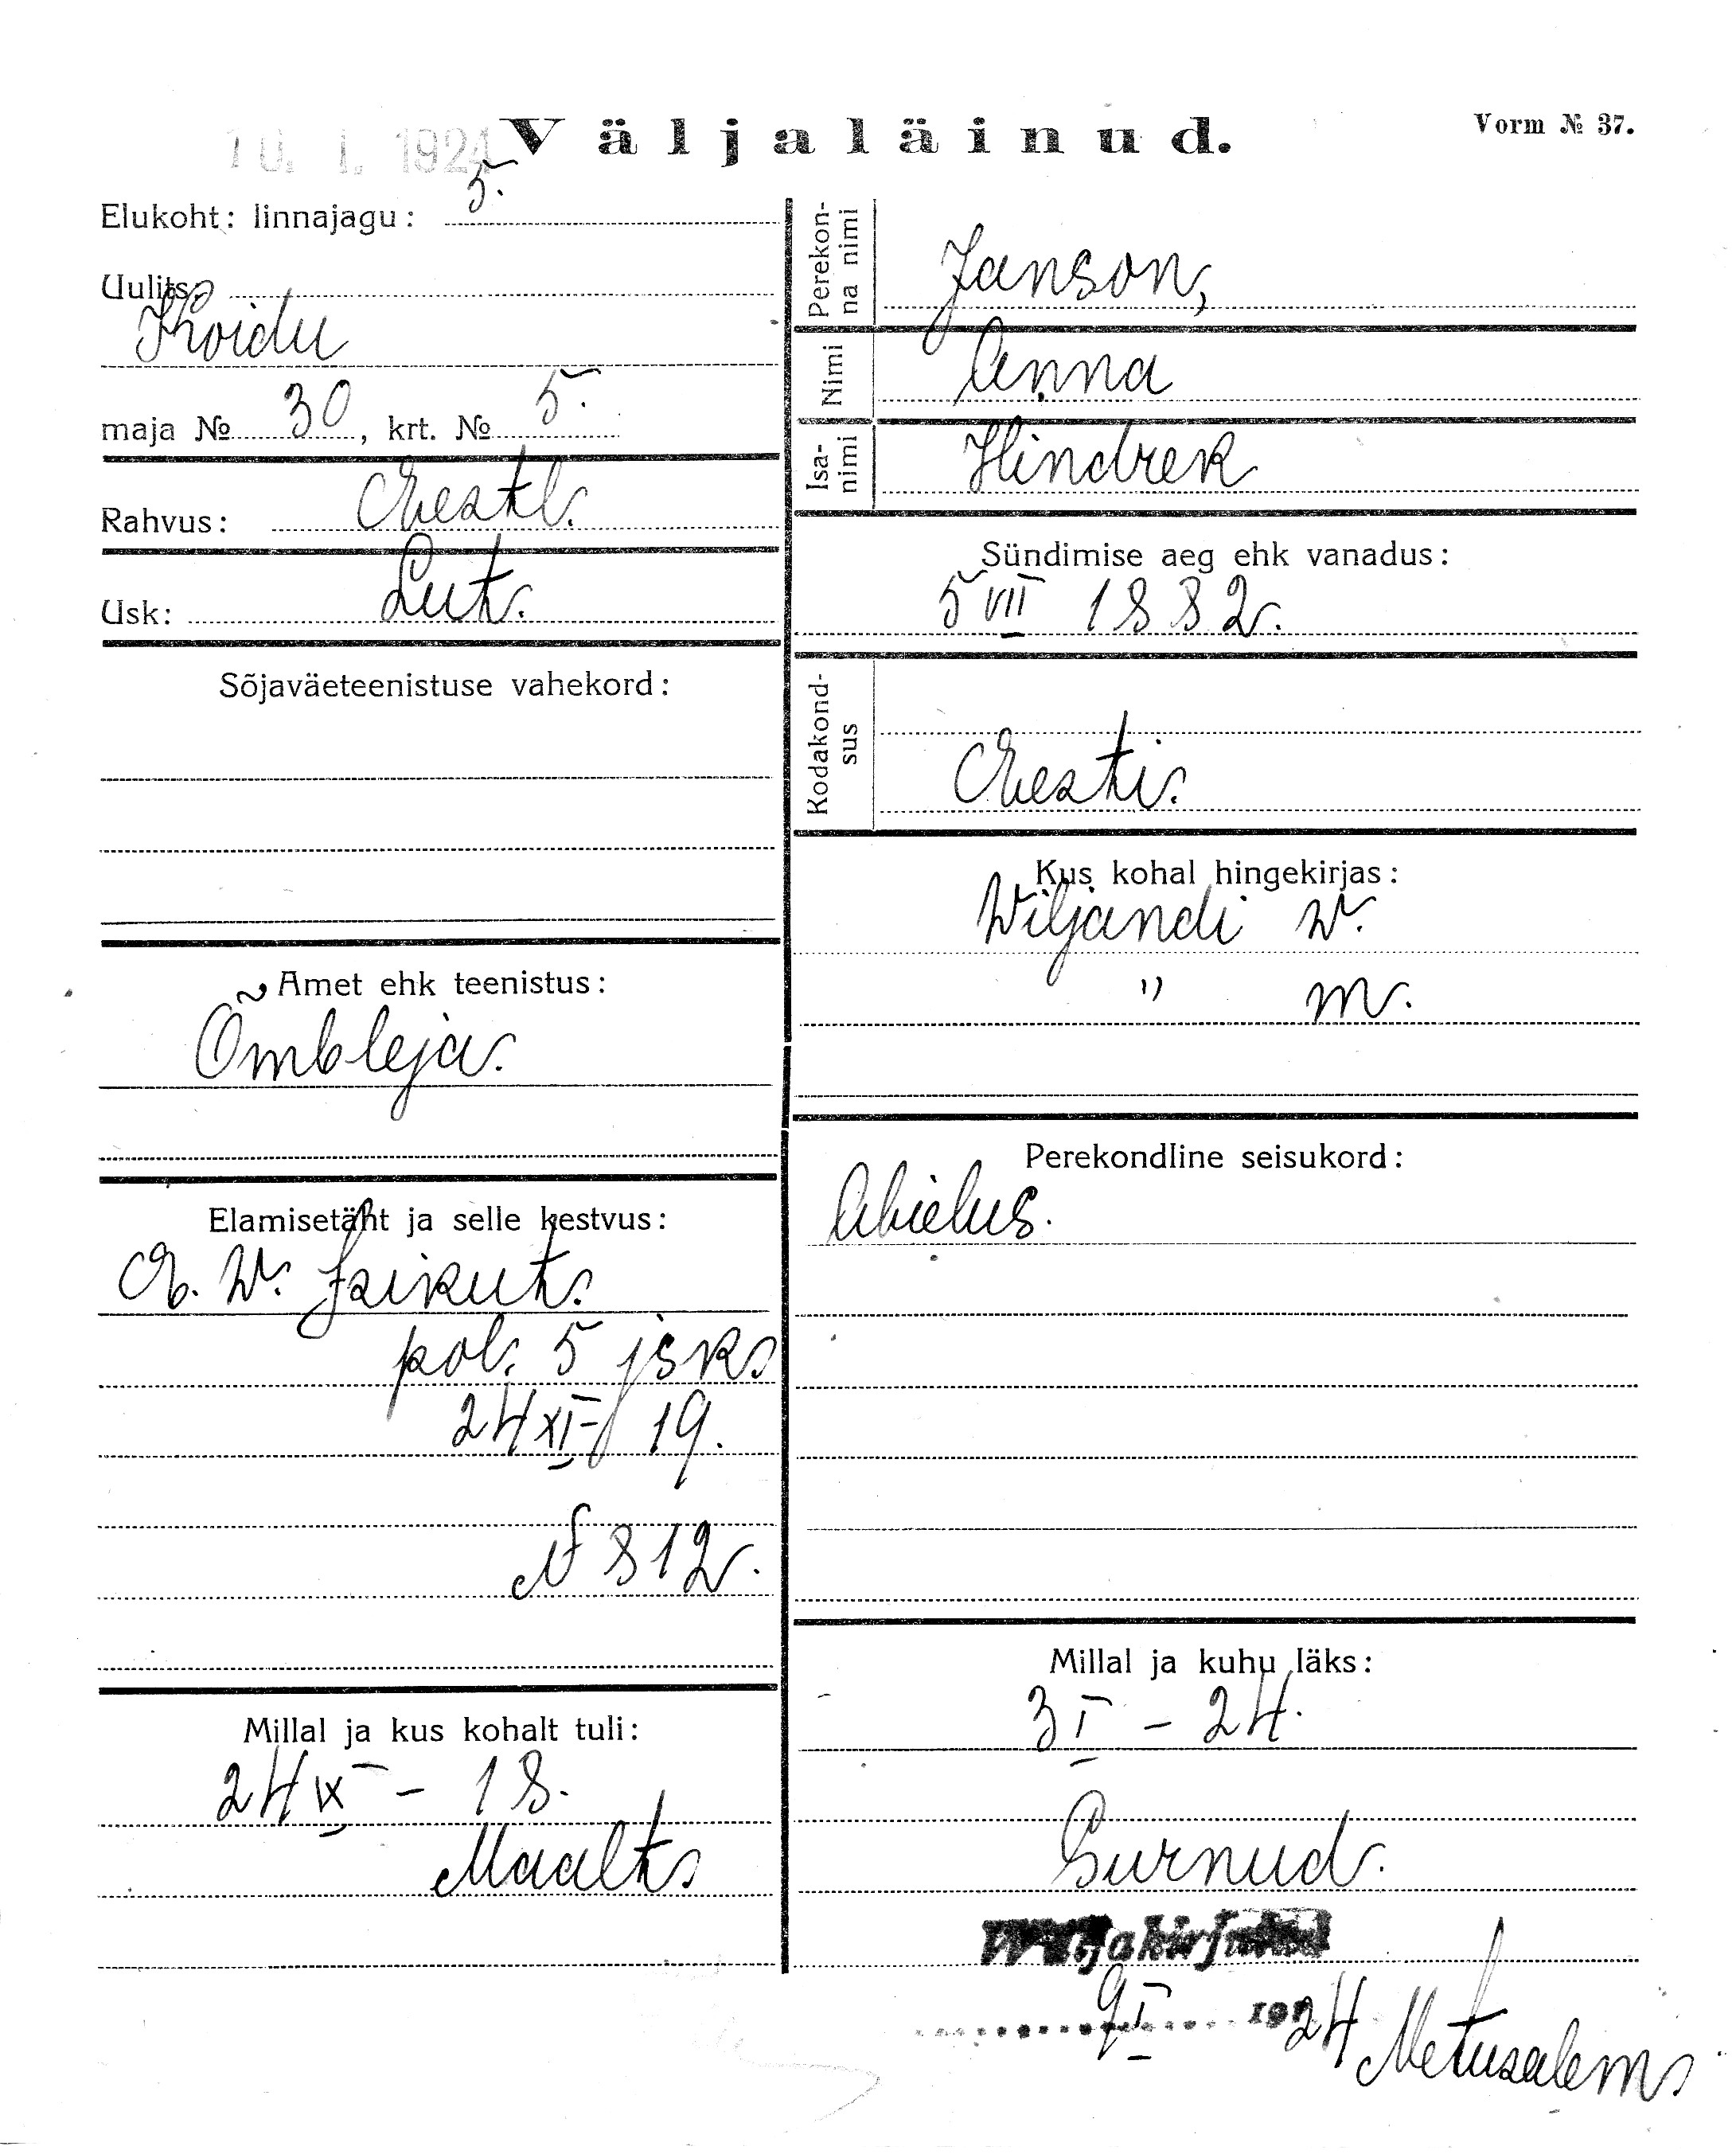 10. I. 1924
Väljaläinud.
Vorm № 37.
Elukoht: linnajagu: 5.
Uulits:
Koidu
maja № 30, krt. № 5.
Rahvus: Eestl.
Usk: Lut.
Sõjaväeteenistuse vahekord:
Amet ehk teenistus:
Õmbleja.
Elamisetäht ja selle kestvus:
E. W. Isikut.
pol. 5 jsk.
24 XI 19.
N 812.
Millal ja kus kohalt tuli:
24 IX - 18.
Maalt.
Perekonna nimi
Janson,
Nimi
Anna
Isanimi
Hindrek
Sündimise aeg ehk vanadus:
5 VII 1882.
Kodakondsus
Eesti.
Kus kohal hingekirjas:
Wiljandi w.
" m.
Perekondline seisukord:
Abielus.
Millal ja kuhu läks:
3 I - 24.
Surnud.
Wäljakirjutud
9 I 1924 Metusalem